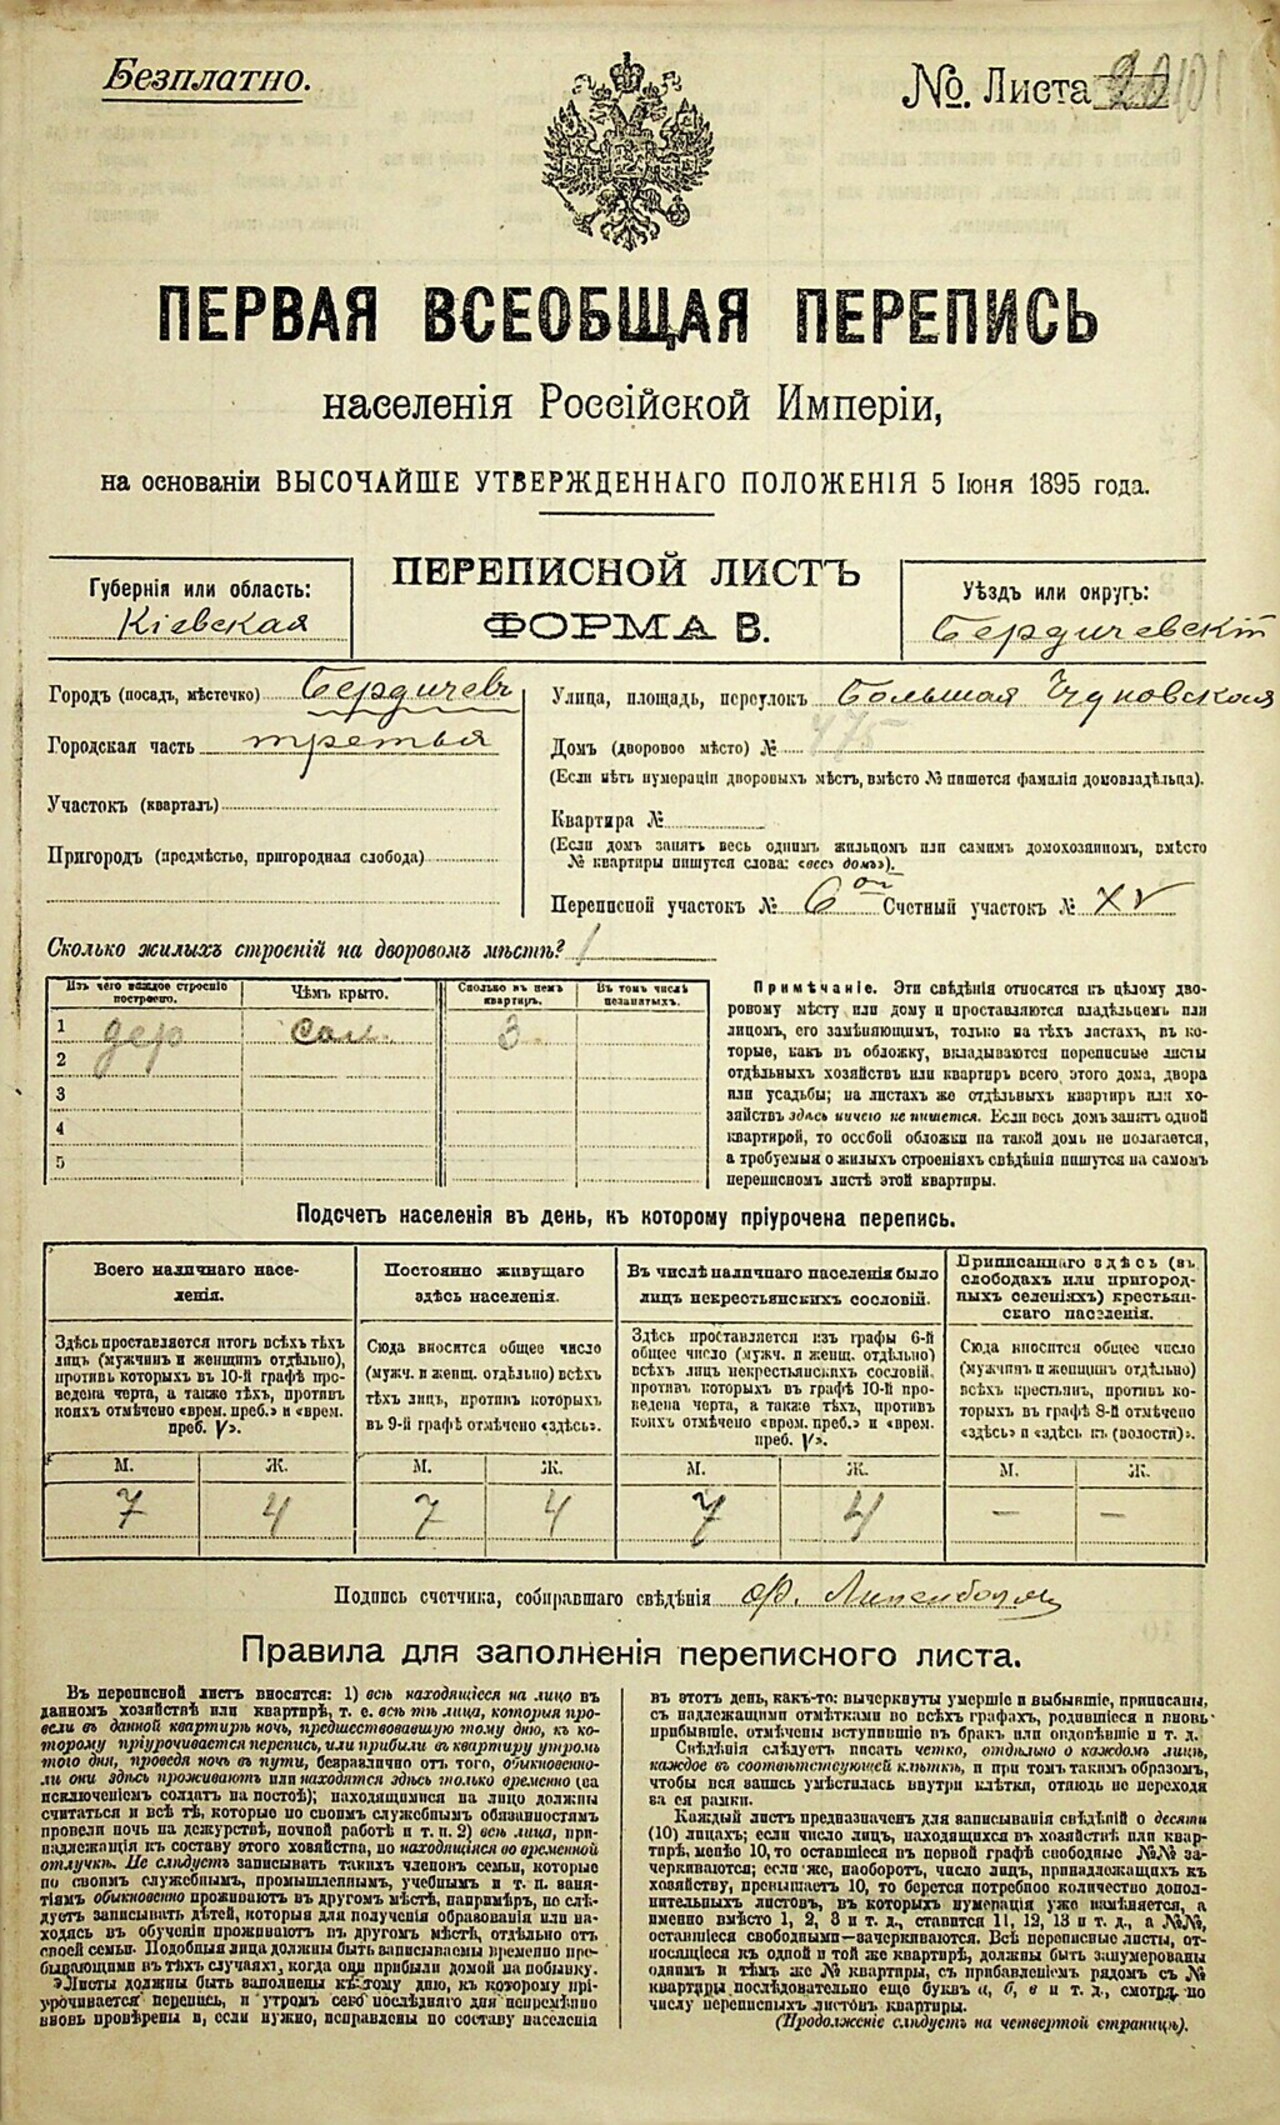 Безплатно.
№. Листа
ПЕРВАЯ ВСЕОБЩАЯ ПЕРЕПИСЬ
населенія Россійской Имперіи,
на основаніи ВЫСОЧАЙШЕ УТВЕРЖДЕННАГО ПОЛОЖЕНІЯ 5 Іюня 1895 года.
Губернія или область:
Кіевская
ПЕРЕПИСНОЙ ЛИСТЪ
ФОРМА В.
Уѣздъ или округъ:
Бердичевскій
Городъ (посадъ, мѣстечко) Бердичевъ
Городская часть третья
Участокъ (кварталъ)
Пригородъ (предмѣстье, пригородная слобода)
Улица, площадь, переулокъ Большая Чудновская
Домъ (дворовое мѣсто) № 475
(Если нѣтъ нумераціи дворовыхъ мѣстъ, вмѣсто № пишется фамилія домовладѣльца).
Квартира №
(Если домъ занятъ весь однимъ жильцомъ или самимъ домохозяиномъ, вмѣсто
№ квартиры пишутся слова: «весь домъ»).
Переписной участокъ № 6 ой Счетный участокъ № XV
Сколько жилыхъ строеній на дворовомъ мѣстѣ? 1
Изъ чего каждое строеніе
построено.
Чѣмъ крыто.
Сколько въ немъ
квартиръ.
Въ томъ числѣ
незанятыхъ.
1 дер сол. 3.
2
3
4
5
Примѣчаніе. Эти свѣдѣнія относятся къ цѣлому дво-
ровому мѣсту или дому и проставляются владѣльцемъ или
лицомъ, его замѣняющимъ, только на тѣхъ листахъ, въ ко-
торые, какъ въ обложку, вкладываются переписные листы
отдѣльныхъ хозяйствъ или квартиръ всего этого дома, двора
или усадьбы; на листахъ же отдѣльныхъ квартиръ или хо-
зяйствъ здѣсь ничего не пишется. Если весь домъ занятъ одной
квартирой, то особой обложки на такой домъ не полагается,
а требуемыя о жилыхъ строеніяхъ свѣдѣнія пишутся на самомъ
переписномъ листѣ этой квартиры.
Подсчетъ населенія въ день, къ которому пріурочена перепись.
Всего наличнаго насе-
ленія.
Здѣсь проставляется итогъ всѣхъ тѣхъ
лицъ (мужчинъ и женщинъ отдѣльно),
противъ которыхъ въ 10-й графѣ про-
ведена черта, а также тѣхъ, противъ
коихъ отмѣчено «врем. преб.» и «врем.
преб. V».
М. Ж.
7 4
Постоянно живущаго
здѣсь населенія.
Сюда вносится общее число
(мужч. и женщ. отдѣльно) всѣхъ
тѣхъ лицъ, противъ которыхъ
въ 9-й графѣ отмѣчено «здѣсь».
М. Ж.
7 4
Въ числѣ наличнаго населенія было
лицъ некрестьянскихъ сословій.
Здѣсь проставляется изъ графы 6-й
общее число (мужч. и женщ. отдѣльно)
всѣхъ лицъ некрестьянскихъ сословій,
противъ которыхъ въ графѣ 10-й про-
ведена черта, а также тѣхъ, противъ
коихъ отмѣчено «врем. преб.» и «врем.
преб. V».
М. Ж.
7 4
Приписаннаго здѣсь (въ
слободахъ или пригород-
ныхъ селеніяхъ) крестьян-
скаго населенія.
Сюда вносится общее число
(мужчинъ и женщинъ отдѣльно)
всѣхъ крестьянъ, противъ ко-
торыхъ въ графѣ 8-й отмѣчено
«здѣсь» и «здѣсь къ (волости)».
М. Ж.
— —
Подпись счетчика, собиравшаго свѣдѣнія
Правила для заполненія переписного листа.
Въ переписной листъ вносятся: 1) всѣ находящіеся на лицо въ
данномъ хозяйствѣ или квартирѣ, т. е. всѣ тѣ лица, которыя про-
вели въ данной квартирѣ ночь, предшествовавшую тому дню, къ ко-
торому пріурочивается перепись, или прибыли въ квартиру утромъ
того дня, проведя ночь въ пути, безразлично отъ того, обыкновенно-
ли они здѣсь проживаютъ или находятся здѣсь только временно (за
исключеніемъ солдатъ на постоѣ); находящимися на лицо должны
считаться и всѣ тѣ, которые по своимъ служебнымъ обязанностямъ
провели ночь на дежурствѣ, ночной работѣ и т. п. 2) всѣ лица, при-
надлежащія къ составу этого хозяйства, но находящіяся во временной
отлучкѣ. Не слѣдуетъ записывать такихъ членовъ семьи, которые
по своимъ служебнымъ, промышленнымъ, учебнымъ и т. п. заня-
тіямъ обыкновенно проживаютъ въ другомъ мѣстѣ, напримѣръ, не слѣ-
дуетъ записывать дѣтей, которыя для полученія образованія или на-
ходясь въ обученіи проживаютъ въ другомъ мѣстѣ, отдѣльно отъ
своей семьи. Подобныя лица должны быть записываемы временно пре-
бывающими въ тѣхъ случаяхъ, когда они прибыли домой на побывку.
Листы должны быть заполнены къ тому дню, къ которому прі-
урочивается перепись, и утромъ сего послѣдняго дня непремѣнно
вновь провѣрены и, если нужно, исправлены по составу населенія
въ этотъ день, какъ-то: вычеркнуты умершіе и выбывшіе, приписаны,
съ надлежащими отмѣтками во всѣхъ графахъ, родившіеся и вновь
прибывшіе, отмѣчены вступившіе въ бракъ или овдовѣвшіе и т. д.
Свѣдѣнія слѣдуетъ писать четко, отдѣльно о каждомъ лицѣ,
каждое въ соотвѣтствующей клѣткѣ, и при томъ такимъ образомъ,
чтобы вся запись умѣстилась внутри клѣтки, отнюдь не переходя
за ея рамки.
Каждый листъ предназначенъ для записыванія свѣдѣній о десяти
(10) лицахъ; если число лицъ, находящихся въ хозяйствѣ или квар-
тирѣ, менѣе 10, то оставшіеся въ первой графѣ свободные №№ за-
черкиваются; если же, наоборотъ, число лицъ, принадлежащихъ къ
хозяйству, превышаетъ 10, то берется потребное количество допол-
нительныхъ листовъ, въ которыхъ нумерація уже измѣняется, а
именно вмѣсто 1, 2, 3 и т. д., ставится 11, 12, 13 и т. д., а №№,
оставшіеся свободными—зачеркиваются. Всѣ переписные листы, от-
носящіеся къ одной и той же квартирѣ, должны быть занумерованы
однимъ и тѣмъ же № квартиры, съ прибавленіемъ рядомъ съ №
квартиры послѣдовательно еще буквъ а, б, в и т. д., смотря по
числу переписныхъ листовъ квартиры.
(Продолженіе слѣдуетъ на четвертой страницѣ).